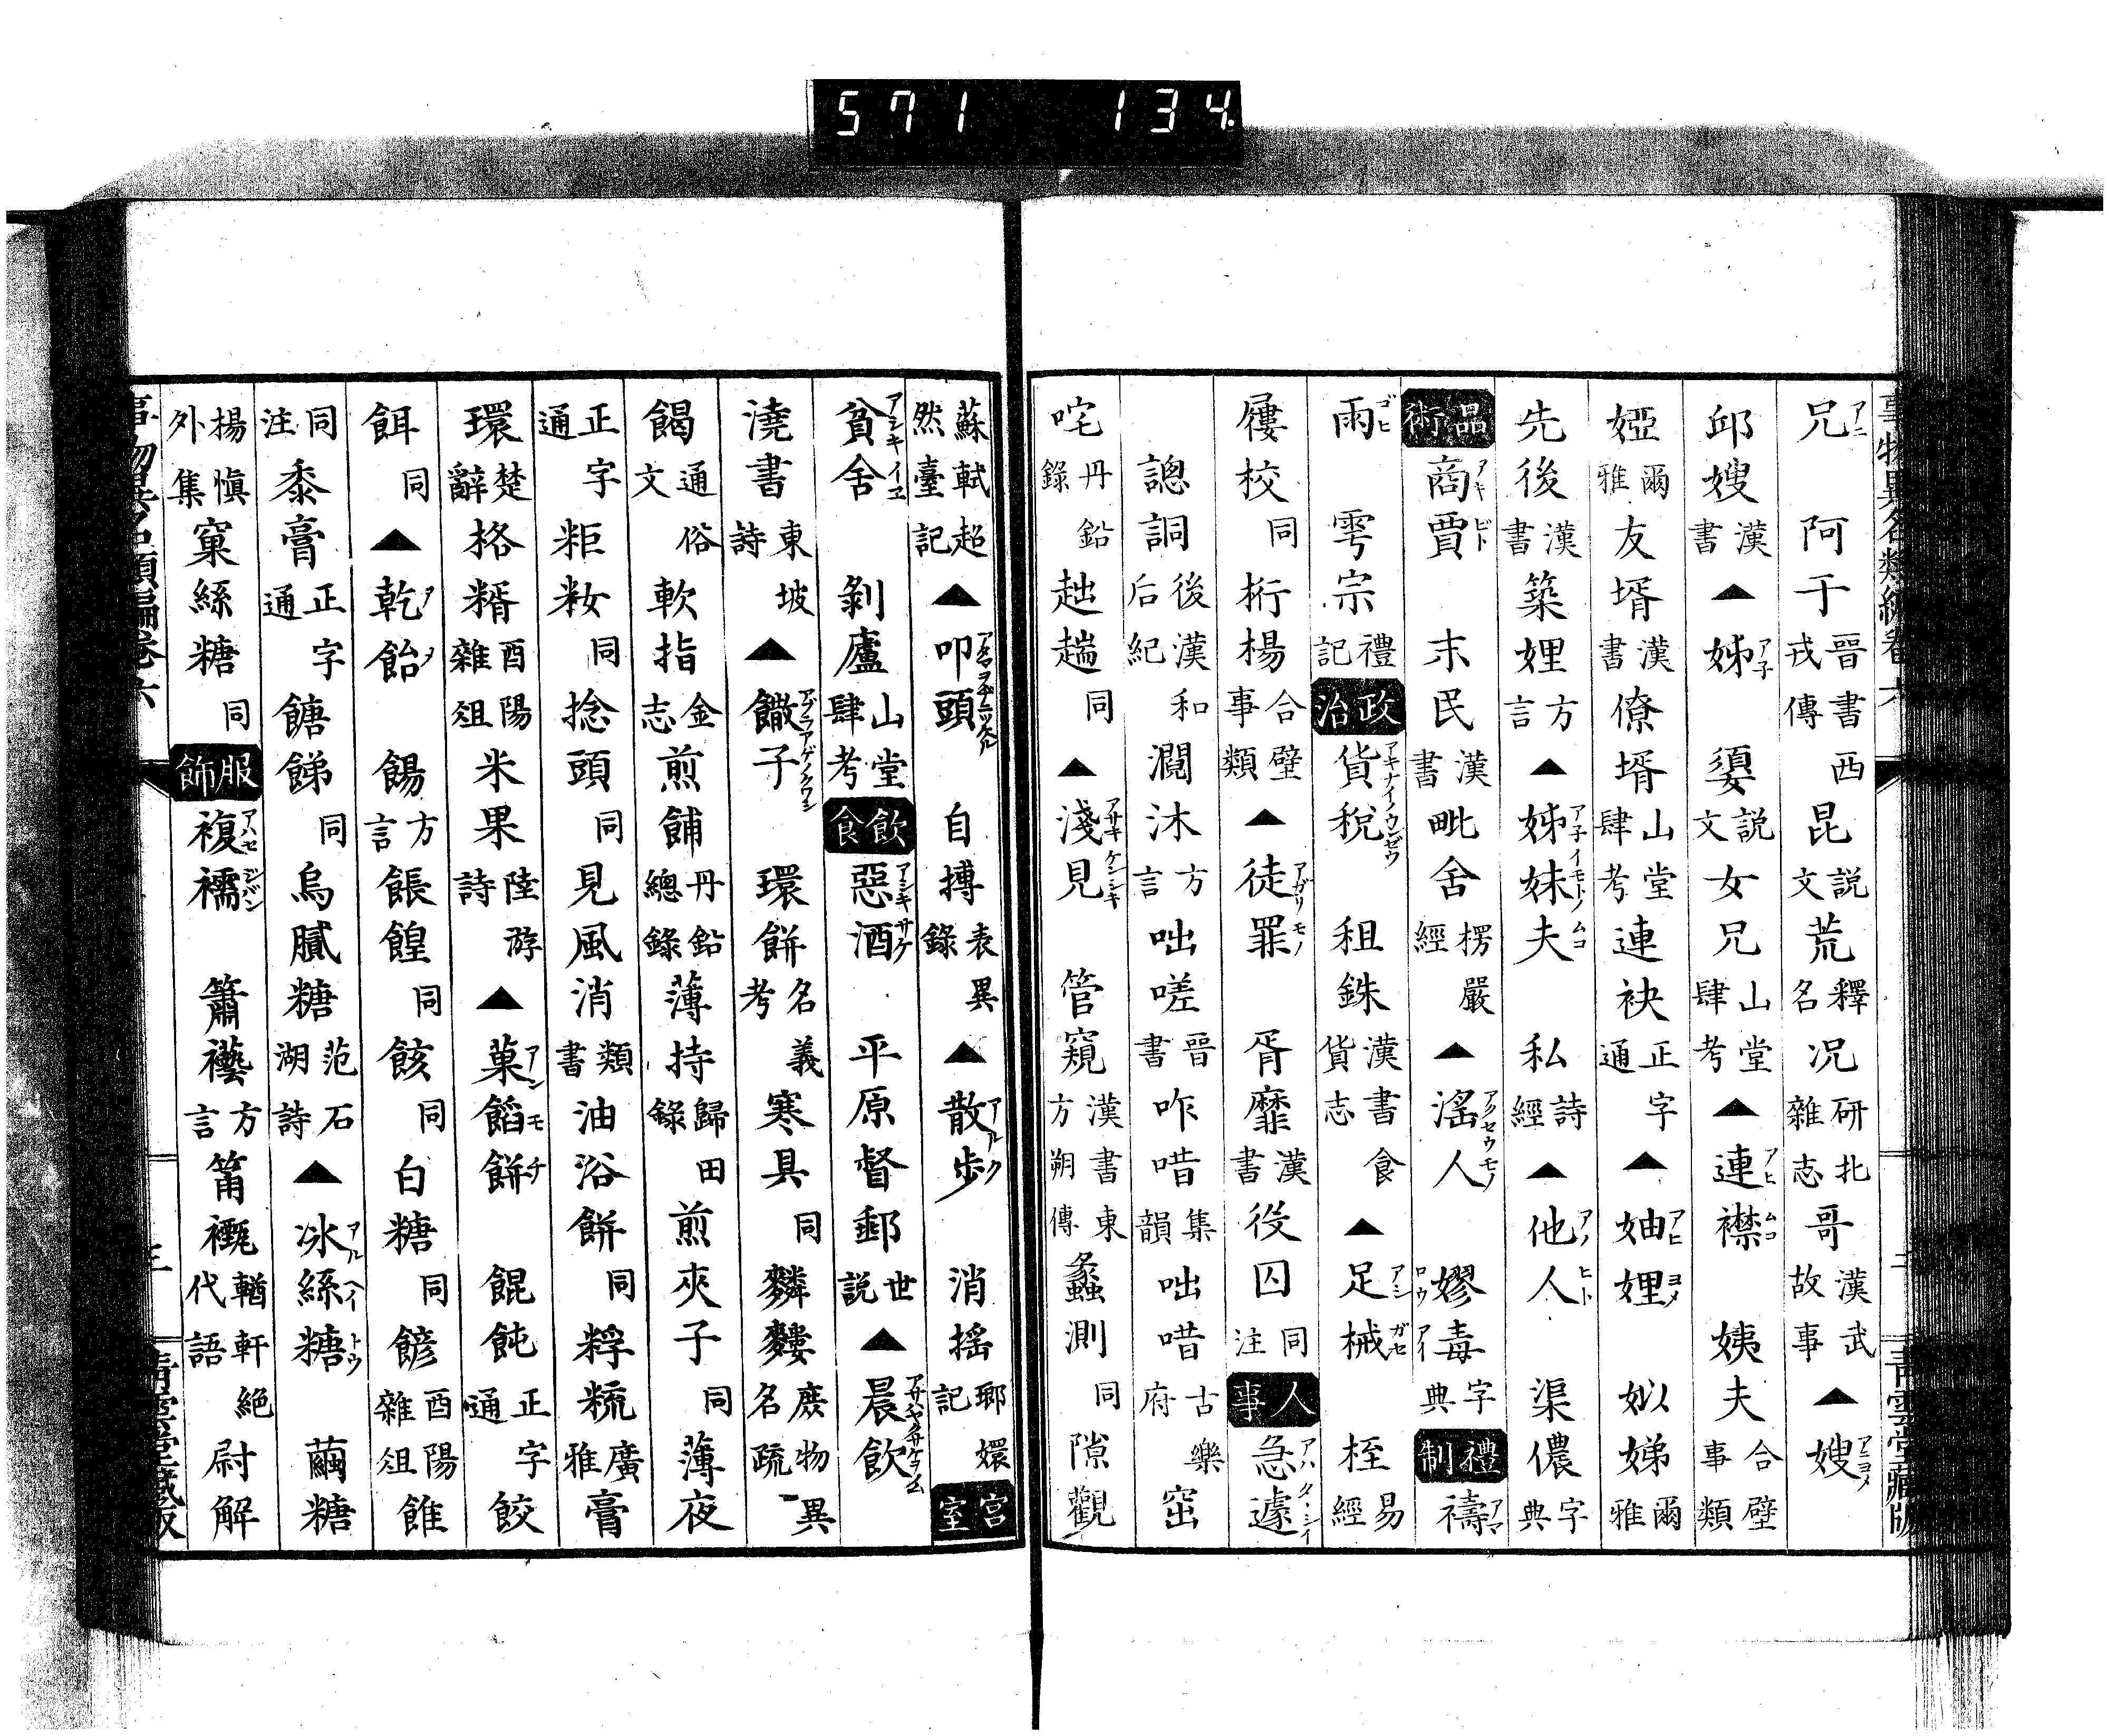 571 134.
兄アニ 阿干晉書西戎傳昆説文荒釋名况研北雜志哥漢武故事▲嫂アニヨメ
邱嫂漢書▲姊アネ 媭説文女兄山堂肆考▲連襟アヒムコ 姨夫合璧事類
婭爾雅友壻漢書僚壻山堂肆考連袂正字通▲妯娌アヒヨメ 姒娣爾雅
先後漢書築娌方言▲姊妹夫アネイモトノムコ 私詩經▲他人アノヒト 渠儂字典
品術商賈アキビト 末民漢書毗舍楞嚴經▲滛人アクセウモノ 嫪毒ロウアイ字典禮制禱アマ
雨ゴヒ 雩宗禮記政治貨税アキナイノウンゼウ 租銖漢書食貨志▲足械アシガセ 桎易經
屨校同桁楊合璧事類▲徒罪アガリモノ 胥靡漢書役囚同注人事急遽アハタヽシイ
 謥詷後漢和后紀濶沐方言咄嗟晉書咋唶集韻咄唶古樂府窋
咤丹鉛錄趉趟同▲淺見アサキケンシキ 管窺漢書東方朔傳蠡測同隙觀
蘇軾超然臺記▲叩頭 自摶表異錄▲散歩アルク 消摇瑯嬛記宮室
貧舍アシキイヱ 剝廬山堂肆考飲食惡酒アシキサケ 平原督郵世説▲晨飲
澆書東坡詩▲饊子 環餅名義考寒具同䴪䴹庶物異名疏
餲通俗文軟指金志煎餔丹鉛總錄薄持歸田錄煎夾子同薄夜
正字通粔籹同捻頭同見風消類書油浴餅同粰𥹷廣雅膏
環楚辭格糈酉陽雜俎米果陸游詩▲菓餡餅アンモチ 餛飩正字通餃
餌同▲乾飴 餳方言餦餭同餩同白糖同餰酉陽雜俎餦
同注黍膏正字通餹餳同烏膩糖范石湖詩▲冰絲糖アルヘイトウ 繭糖
楊慎外集窠絲糖同服飾複襦アハセジバン 䈰䙝方言䈰𧞤輶軒絶代語尉解
事物異名類編卷六
青雲堂藏版